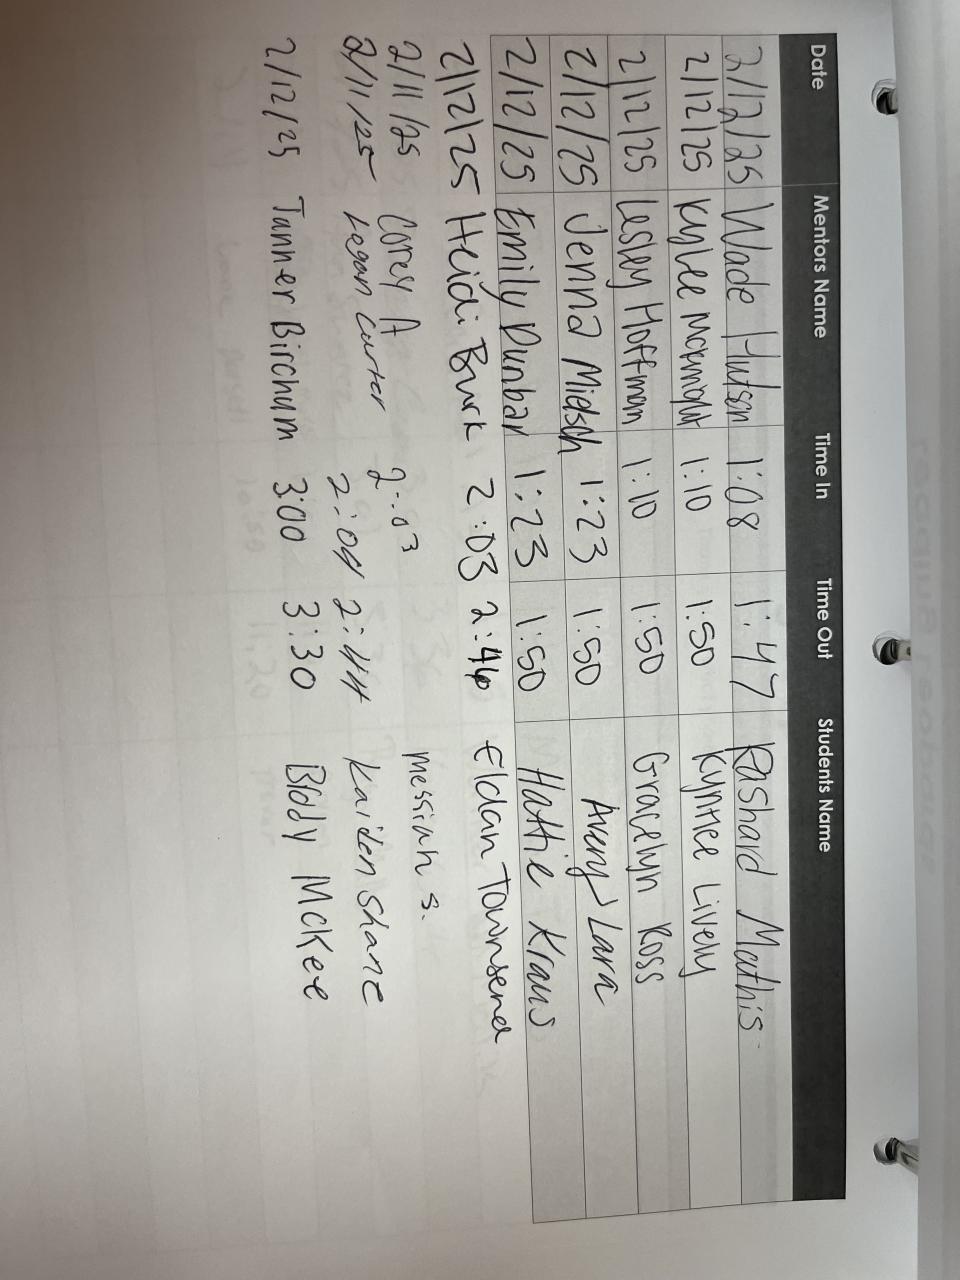 Date Mentors Name Time In Time Out Students Name
2/12/25 Wade Hutson 1:08 1:47 Rashard Mathis
2/12/25 Kylee McKnight 1:10 1:50 Kynlee Lively
2/12/25 Lesley Hoffman 1:10 1:50 Gracelyn Ross
2/12/25 Jenna Miesch 1:23 1:50 Avery Lara
2/12/25 Emily Dunbar 1:23 1:50 Hattie Kraus
2/12/25 Heidi Burk 2:03 2:46 Eldan Townsend
2/11/25 Corey A 2:03 Messiah S.
2/11/25 Kegan Carter 2:04 2:44 Kaiden Shane
2/12/25 Tanner Birchum 3:00 3:30 Biddy McKee